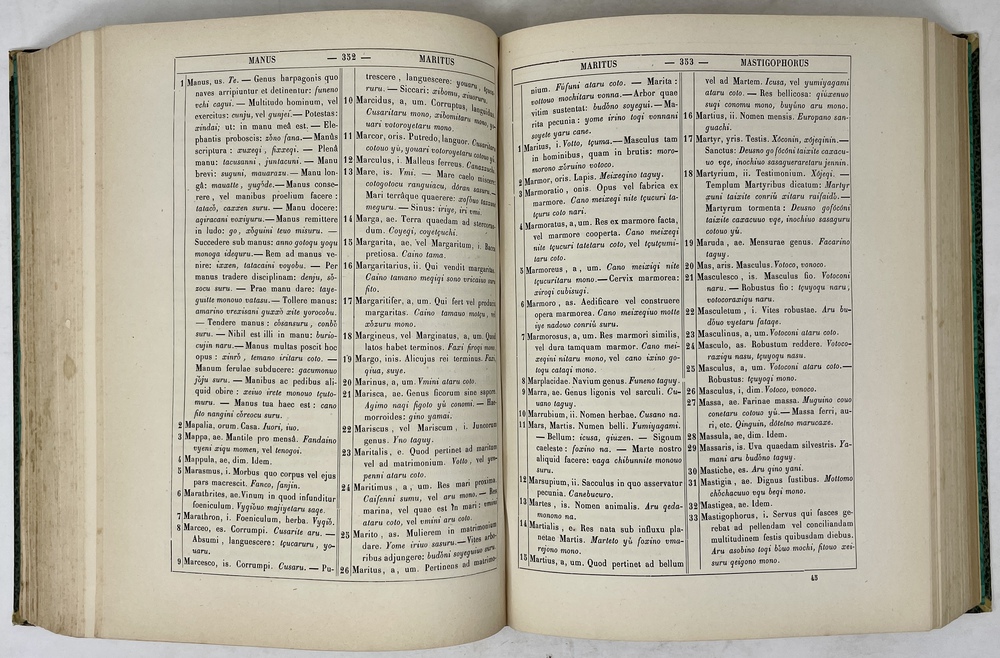 MANUS — 352 — MARITUS
1 Manus, us. Te. — Genus harpagonis quo
naves arripiuntur et detinentur: funeno
vchi cagui. — Multitudo hominum, vel
exercitus: cunju, vel gunjei. — Potestas:
xindai; ut: in manu meâ est. — Ele-
phantis proboscis: zôno fana. — Manûs
scriptura : xuxeqi , fixxeqi. — Plenâ
manu: tacusanni , juntacuni. — Manu
brevi: suguni, mauaraxu. — Manu lon-
gâ: mauatte, yugôde. — Manus conse-
rere, vel manibus proelium facere :
tatacò, caxxen suru. — Manu docere:
agiracani voxiguru. — Manus remittere
in ludo: go, xôguini teuo misuru. —
Succedere sub manus: anno gotoqu yoqu
monoga idequru. — Rem ad manus ve-
nire: ixxen, tatacaini voyobu. — Per
manus tradere disciplinam: denju, sô-
zocu suru. — Prae manu dare: taye-
guitte monouo vatasu. — Tollere manus:
amarino vrexisani guxxò xite yorocobu.
— Tendere manus : còsansuru, conbò
suru. — Nihil est illi in manu: burio-
cujin naru. — Manus multas poscit hoc
opus : xinrô , temano iritaru coto. —
Manum ferulae subducere: gacumonuo
jôju suru. — Manibus ac pedibus ali-
quid obire : xeiuo irete monouo tçuto-
muru. — Manus tua haec est : cano
fito nangini còreocu suru.
2 Mapalia, orum. Casa. Juori, iuo.
3 Mappa, ae. Mantile pro mensâ. Fandaino
vyeni xiqu momen, vel tenogoi.
4 Mappula, ae, dim. Idem.
5 Marasmus, i. Morbus quo corpus vel ejus
pars macrescit. Fanco, fanjin.
6 Marathrites, ae. Vinum in quod infunditur
foeniculum. Vyqiòuo majiyetaru saqe.
7 Marathron, i. Foeniculum, herba. Vyqiò.
8 Marceo, es. Corrumpi. Cusarite aru. —
Absumi , languescere: tçucaruru , yo-
uaru.
9 Marcesco, is. Corrumpi. Cusaru. — Pu-
trescere , languescere: youaru,
ruru. — Siccari: xibomu, xiuoruru.
10 Marcidus, a, um. Corruptus, languidus.
Cusaritaru mono, xibomitaru mono, yo-
uari votoroyetaru mono.
11 Marcor, oris. Putredo, languor. Cusaritaru
cotouo yŭ, youari votoroyetaru cotouo yŭ.
12 Marculus, i. Malleus ferreus. Canazzuchi.
13 Mare, is. Vmi. — Mare caelo miscere:
cotogotocu ranguiacu, dôran sasuru. —
Mari terrâque quaerere: xofôuo tazzune
meguru. — Sinus: iriye, iri vmi.
14 Marga, ae. Terra quaedam ad stercoran-
dum. Coyegi, coyetçuchi.
15 Margarita, ae. vel Margaritum, i. Bacca
pretiosa. Caino tama.
16 Margaritarius, ii. Qui vendit margaritas.
Caino tamano meqiqi sono vricaiuo suru
fito.
17 Margaritifer, a, um. Qui fert vel producit
margaritas. Caino tamano motçu, vel
xôzuru mono.
18 Margineus, vel Marginatus, a, um. Quod
latos habet terminos. Faxi firoqi mono.
19 Margo, inis. Alicujus rei terminus. Faxi,
qiua, suye.
20 Marinus, a, um. Vmini ataru coto.
21 Marisca, ae. Genus ficorum sine sapore.
Agimo naqi figoto yŭ conomi. — Hae-
morroides: gino yamai.
22 Mariscus, vel Mariscum, i. Juncorum
genus. Yno taguy.
23 Maritalis, e. Quod pertinet ad maritum
vel ad matrimonium. Votto , vel yen-
penni ataru coto.
24 Maritimus , a , um. Res mari proxima.
Caifenni sumu, vel aru mono. — Res
marina, vel quae est in mari: vmino
ataru coto, vel vmini aru coto.
25 Marito, as. Mulierem in matrimonium
dare. Yome iriuo sasuru. — Vites arbo-
ribus adjungere: budôni soyeguiuo suru.
26 Maritus, a, um. Pertinens ad matrimo-
MARITUS — 353 — MASTIGOPHORUS
nium. Fûfuni ataru coto. — Marita :
vottouo mochitaru vonna. — Arbor quae
vitim sustentat: budôno soyegui. — Ma-
rita pecunia : yome irino toqi vonnani
soyete yaru cane.
1 Maritus, i. Votto, tçuma. — Masculus tam
in hominibus, quam in brutis: moro-
morono xôruino votoco.
2 Marmor, oris. Lapis. Meixeqino taguy.
3 Marmoratio , onis. Opus vel fabrica ex
marmore. Cano meixeqi nite tçucuri ta-
tçuru coto nari.
4 Marmoratus, a, um. Res ex marmore facta,
vel marmore cooperta. Cano meixeqi
nite tçucuri tatetaru coto, vel tçutçumi-
taru coto.
5 Marmoreus , a , um. Cano meixiqi nite
tçucuritaru mono. — Cervix marmorea:
xiroqi cubisugi.
6 Marmoro , as. Aedificare vel construere
opera marmorea. Cano meixeqiuo motte
iye nadouo conriŭ suru.
7 Marmorosus, a, um. Res marmori similis,
vel dura tamquam marmor. Cano mei-
xeqini nitaru mono, vel cano ixino go-
toqu cataqi mono.
8 Marplacidae. Navium genus. Funeno taguy.
9 Marra, ae. Genus ligonis vel sarculi. Cu-
uano taguy.
10 Marrubium, ii. Nomen herbae. Cusano na.
11 Mars, Martis. Numen belli. Yumiyagami.
— Bellum: icusa, qiuxen. — Signum
caeleste : foxino na. — Marte nostro
aliquid facere: vaga chibunnite monouo
suru.
12 Marsupium, ii. Sacculus in quo asservatur
pecunia. Canebucuro.
13 Martes , is. Nomen animalis. Aru qeda-
monono na.
14 Martialis , e. Res nata sub influxu pla-
netae Martis. Marteto yŭ foxino vma-
rejono mono.
15 Martius, a, um. Quod pertinet ad bellum
vel ad Martem. Icusa, vel yumiyagami
ataru coto. — Res bellicosa: qiuxenuo
suqi conomu mono, buyŭno aru mono.
16 Martius, ii. Nomen mensis. Europano san-
guachi.
17 Martyr, yris. Testis. Xôconin, xôjeqinin. —
Sanctus: Deusno go fôcôni taixite caxacu-
uo vqe, inochiuo sasaqueraretaru jennin.
18 Martyrium, ii. Testimonium. Xôjeqi. —
Templum Martyribus dicatum: Martyr
xuni taixite conriŭ xitaru raifaidô. —
Martyrum tormenta : Deusno gofôcôni
taixite caxacuuo vqe, inochiuo sasaguru
cotouo yŭ.
19 Maruda , ae. Mensurae genus. Facarino
taguy.
20 Mas, aris. Masculus. Votoco, vonoco.
21 Masculesco , is. Masculus fio. Votoconi
naru. — Robustus fio : tçuyoqu naru,
votocoraxiqu naru.
22 Masculetum , i. Vites robustae. Aru bu-
dôuo vyetaru fataqe.
23 Masculinus, a, um. Votoconi ataru coto.
24 Masculo, as. Robustum reddere. Votoco-
raxiqu nasu, tçuyoqu nasu.
25 Masculus, a, um. Votoconi ataru coto. —
Robustus: tçuyoqi mono.
26 Masculus , i, dim. Votoco, vonoco.
27 Massa, ae. Farinae massa. Muguino couo
conetaru cotouo yŭ. — Massa ferri, au-
ri, etc. Qinguin, dôtetno marucaxe.
28 Massula, ae, dim. Idem.
29 Massaris, is. Uva quaedam silvestris. Ya-
mani aru budôno taguy.
30 Mastiche, es. Aru qino yani.
31 Mastigia , ae. Dignus fustibus. Mottomo
chôchacuuo vqu beqi mono.
32 Mastigea, ae. Idem.
33 Mastigophorus , i. Servus qui fasces ge-
rebat ad pellendam vel conciliandam
multitudinem festis quibusdam diebus.
Aru asobino toqi bŭuo mochi, fitouo xei-
suru qeigono mono.
45